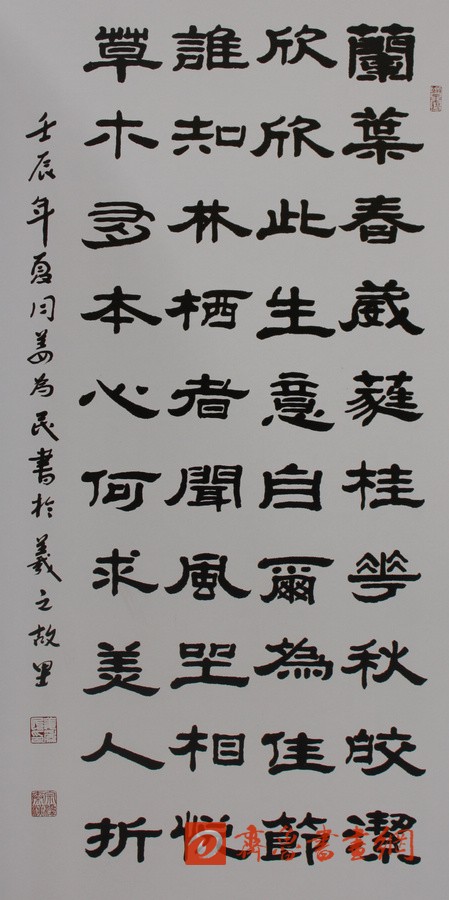 蘭葉春葳蕤桂華秋皎潔
欣欣此生意自爾為佳節
誰知林栖者聞風坐相悅
草木多本心何求美人折
壬辰年夏月姜為民書於羲之故里
齊魯書畫網